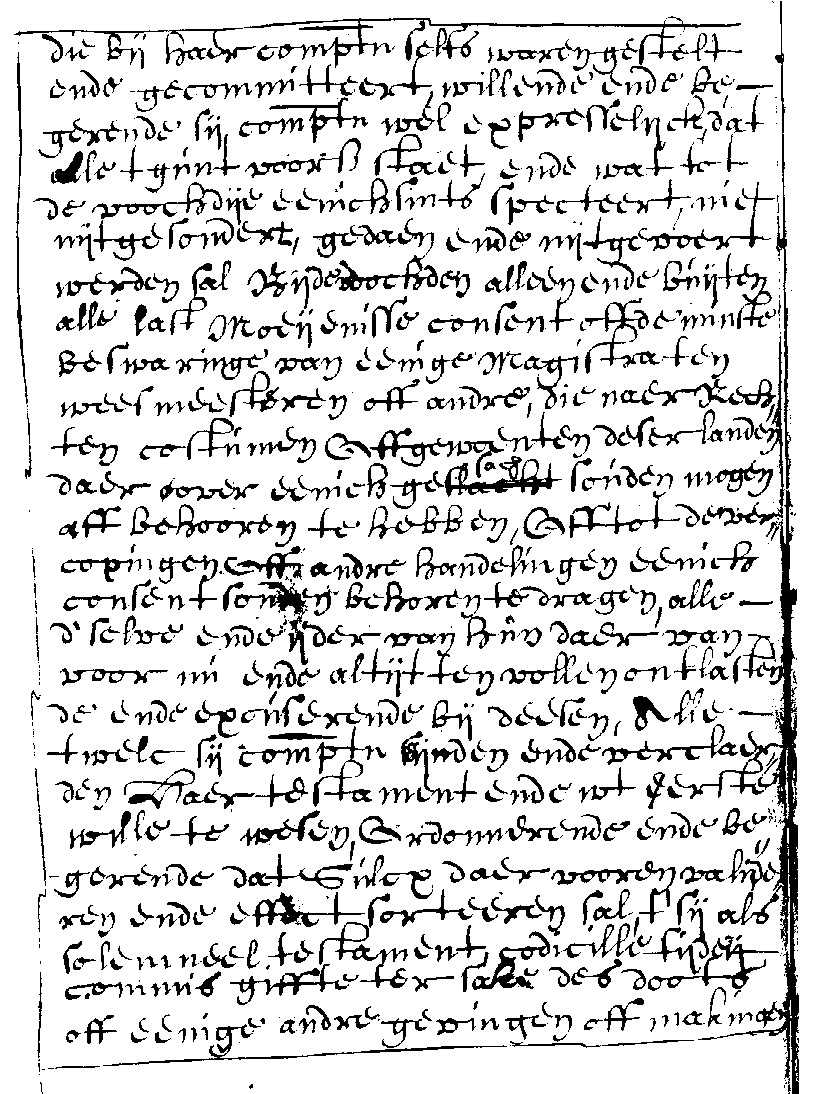 die bij haer comptn selfs waren gestelt
ende gecommitteert, willende ende be-
gerende sij comptn wel expresselijck, dat
alle tgunt voors staet, ende wat tot
de voochdije eenichsints specteert, niet
uijtgesondert, gedaen ende uijtgevoert
werden sal Bijde voochden alleen ende buijten
alle last Moeijenisse consent offde minste
beswaringe van eenige Magistraten
weesmeesteren off andre, die naer Rech-
ten costumen Off gewoenten deser landen
daer over eenich gesach souden mogen
aff behooren te hebben, Off tot de ver-
copingen Off andre handelingen eenich
consent souden behoren te dragen, alle -
d'selve ende ijder van hun daer van -
voor nu ende altijt ten vollen ontlasten
de ende excuserende bij deesen, Alle -
twelc sij comptn ende verclaer-
den Haer testament ende wt terste
wille te wesen, Ordonnerende ende be-
gerende dat Sulcx daer vooren valide-
ren ende effect sorteeren sal, t'sij als
solemneel testament, codicille fideij
commis giffte ter sake des doots
off eenige andre gevingen off makingen